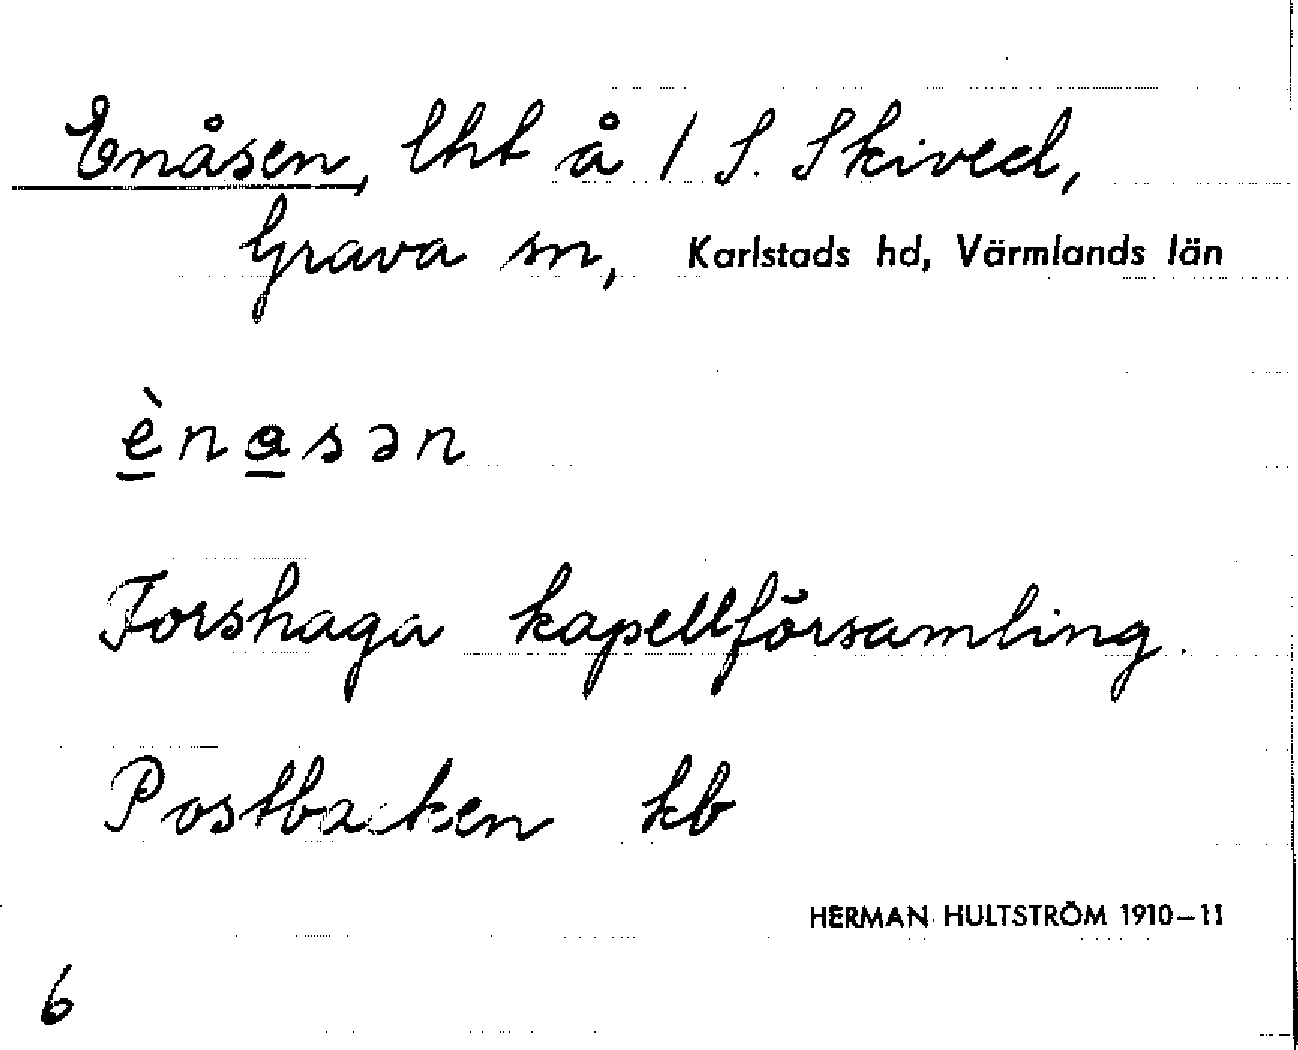 Enåsen, lht å 1 S. Skived,
Grava sn, Karlstads hd, Värmlands län
ènasən
Forshaga kapellförsamling.
Postbacken kb
HERMAN HULTSTRÖM 1910–11
6